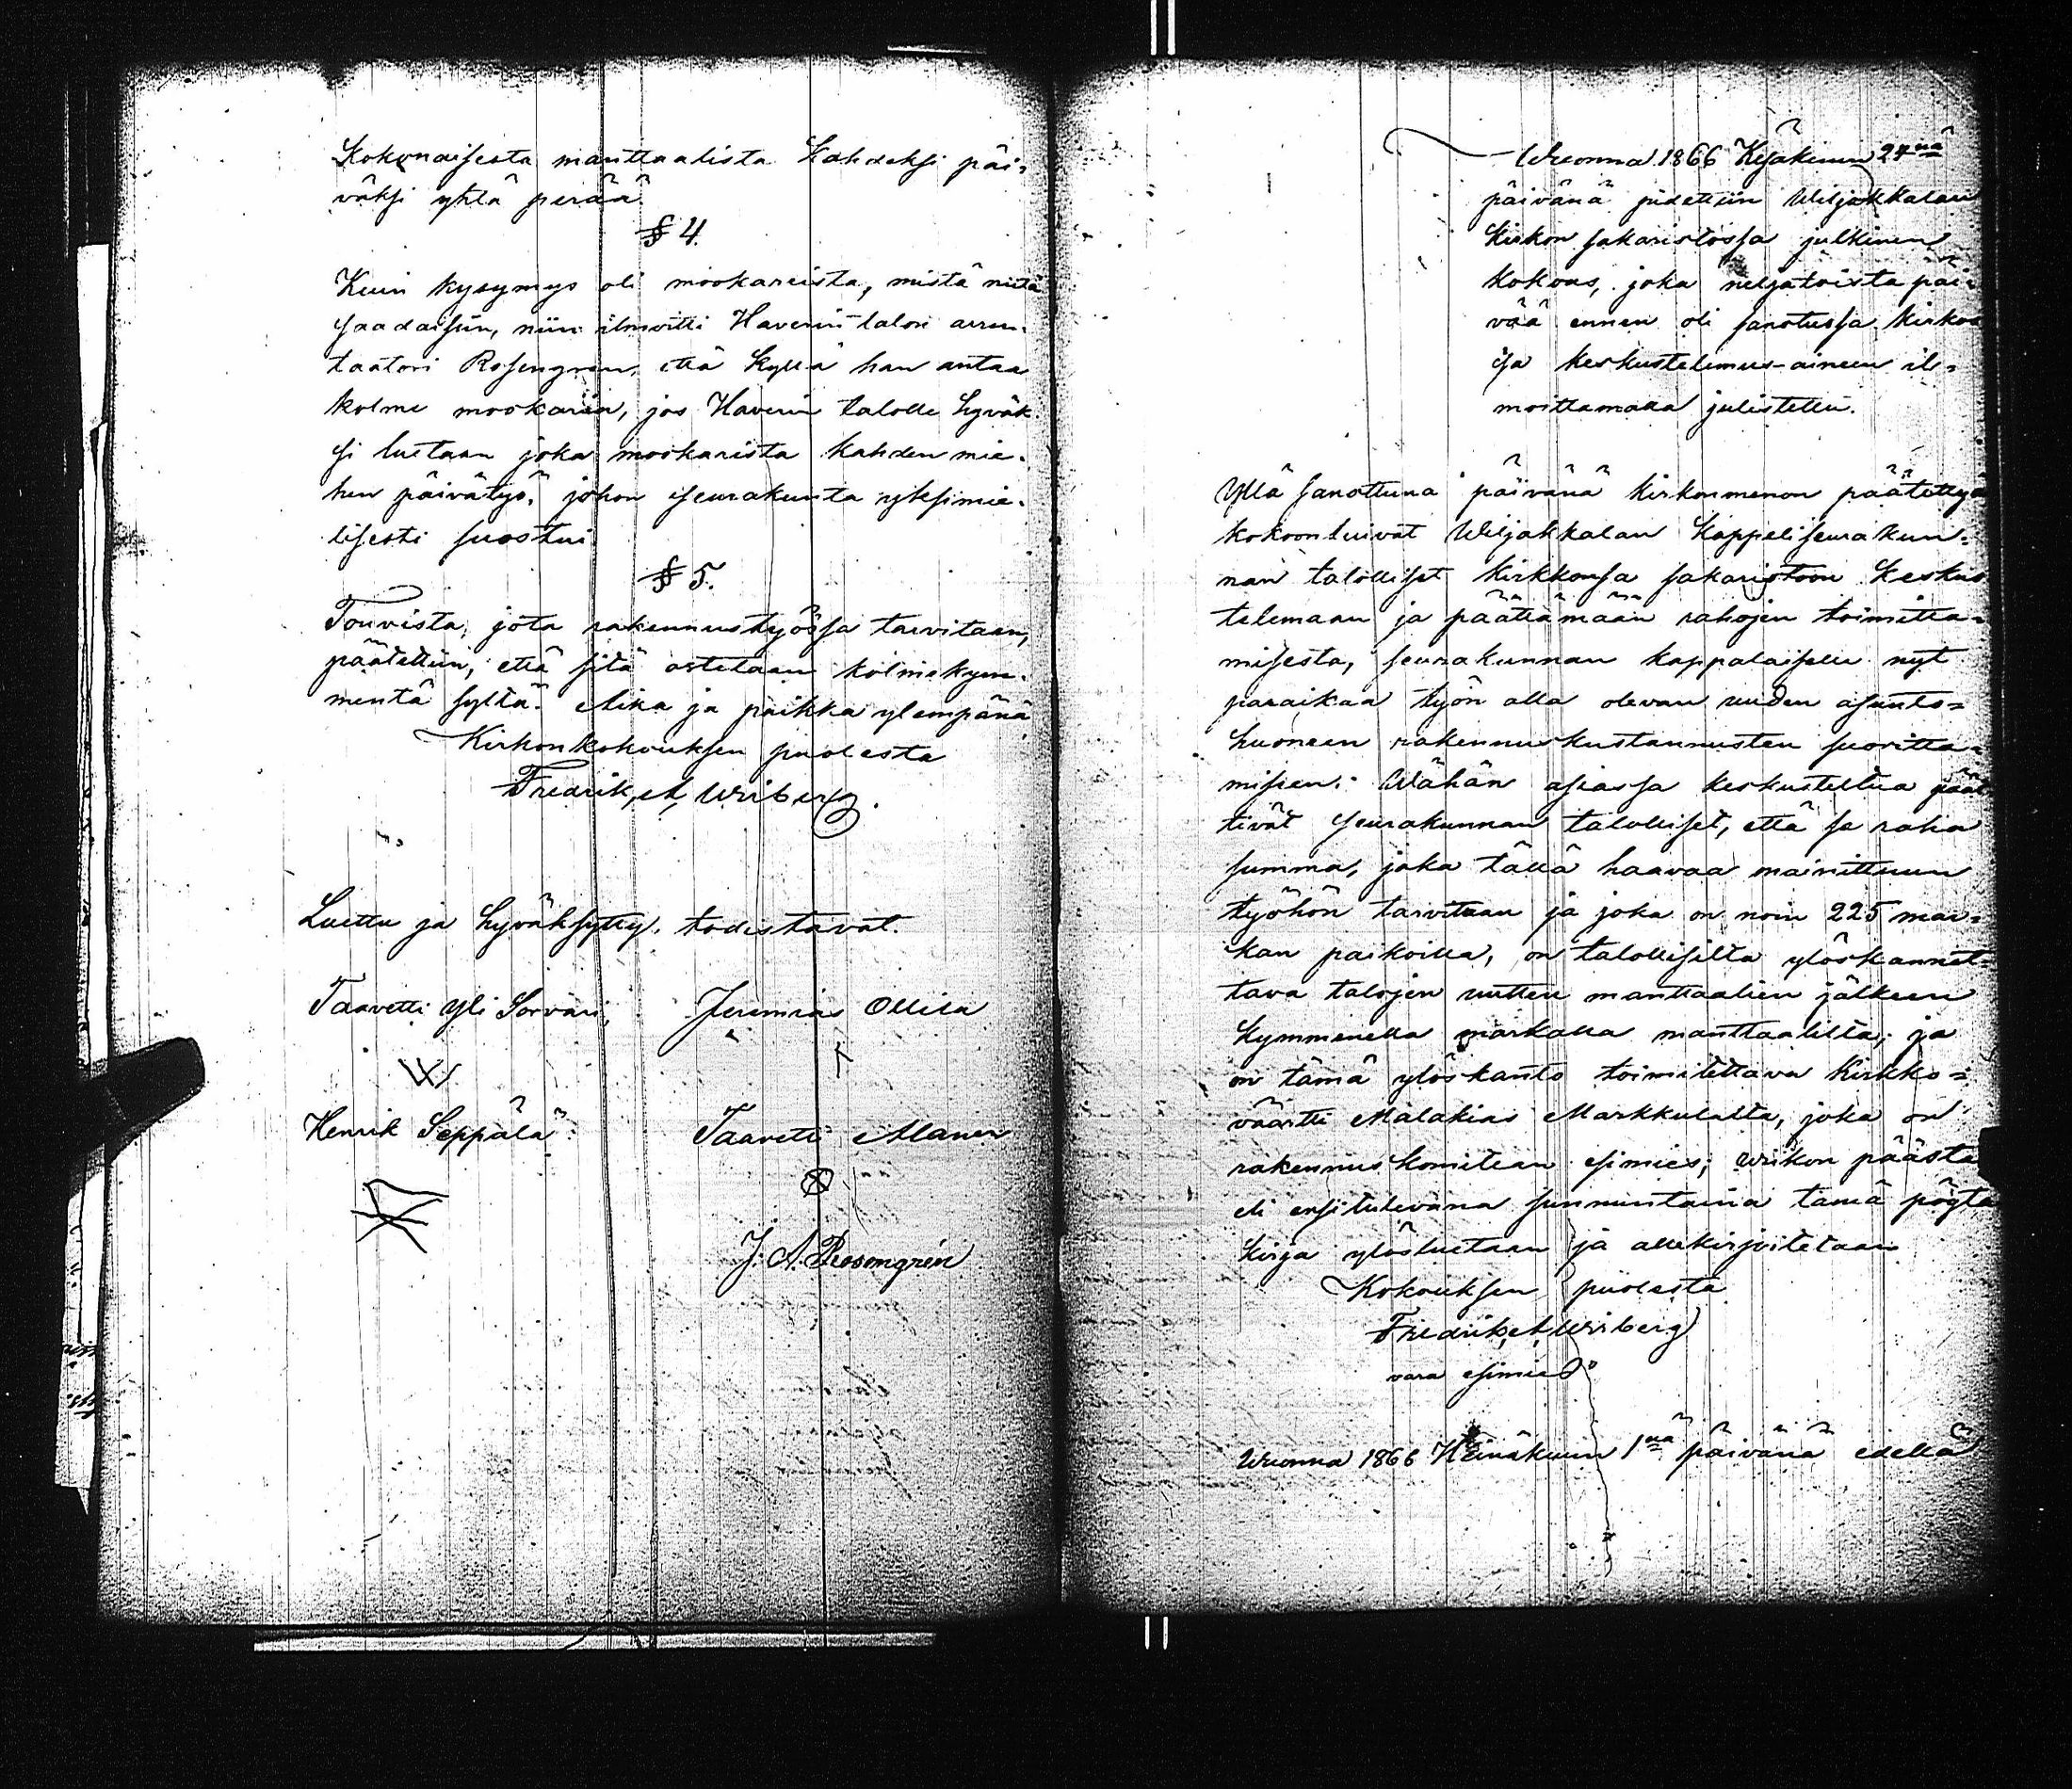 Kokonaisesta manttaalista kahdeksi päi-
väksi yhtä perää
§ 4.
Kuin kysymys oli mookareista, mistä niitä
saadaisiin, niin ilmoitti Haverin talon arren-
taatori Rosengren, että kyllä han antaa
kolme mookaria, jos Haverin talolle hyväk-
si luetaan joka mookarista kahden mie-
hen päivätyö, johon seurakunta yksimie-
lisesti suostui
§ 5.
Touvista, jota rakennustyössä tarvitaan,
päätettiin, että sitä ostetaan kolmekym-
mentä syltä. Aika ja paikka ylempänä
Kirkonkokouksen puolesta
Fredrik, A, Wriberg.
Luettu ja hyväksytty, todistavat.
Taavetti Yli Sorvari, Jeremias Ollila
Henrik Seppälä Taavetti Maner
J. A. Rosengrén
Wuonna 1866 Kesäkuun 24nä
päivänä pidettiin Wiljakkalan
kirkon sakaristossa julkinen
kokous, joka neljätoista päi-
vää ennen oli sanotussa kirkos
sa keskustelemus-aineen il-
moittamalla julistettu.
Yllä sanottuna päivänä kirkonmenon päätettyä
kokoontuivat Wiljakkalan kappeliseurakun-
nan talolliset kirkkonsa sakaristoon keskus
telemaan ja päättämään rahojen toimitta-
misesta, seurakunnan kappalaisille nyt
paraikaa työn alla olevan uuden asunto-
huoneen rakennuskustannusten suoritta-
miseen. Wähän asiassa keskusteltua päät
tivät seurakunnan talolliset, että se raha
summa, joka tällä haavaa mainittuun
työhön tarvitaan ja joka on noin 225 mar-
kan paikoilla, on talollisilta ylöskannet-
tava talojen uutten manttaalien jälkeen
kymmenellä markalla manttaalilta; ja
on tämä ylöskanto toimitettava Kirkko-
väärtti Malakias Markkulalta, joka on
rakennuskomitean esimies; wiikon päästä
eli ensitulevana sunnuntaina tämä pöytä
kirja ylösluetaan ja allekirjoitetaan
Kokouksen puolesta
Fredrik, A, Wriberg
vara esimies
Wuonna 1866 Heinäkuun 1nä päivänä edellä